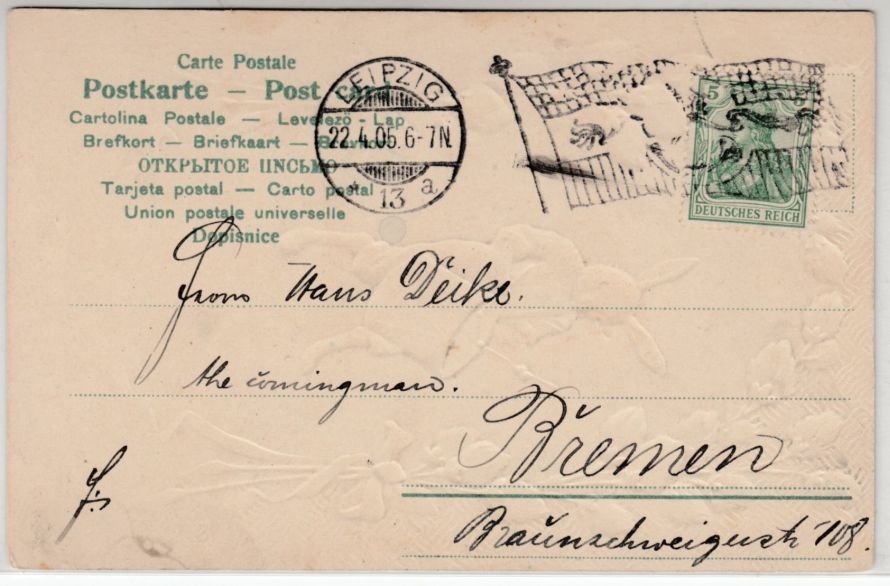 Carte Postale
Postkarte — Post
Cartolina Postale — Levelező - Lap
Brefkort — Briefkaart —
ОТКРЫТОЕ ПИСЬМО
Tarjeta postal — Carto postal
Union postale universelle
Dopisnice
LEIPZIG
22.4.05. 6-7N.
* 13 a
5
DEUTSCHES REICH
Hans Deike.
the comingman.
Bremen
Braunschweigerstr 108.